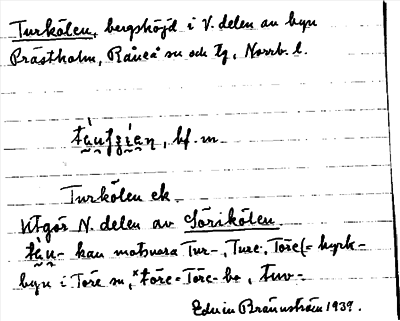 Turkölen, bergshöjd i V. delen av byn
Prästholm, Råneå sn och tg, Norrb. l.
bf. m
Turkölen ek
Utgör N. delen av Sörikölen
kan motsvara Tur-, Ture-, Töre (= kyrk-
byn i Töre sn, *töre- Töre-bo, tuv-
Edvin Brännström 1939.